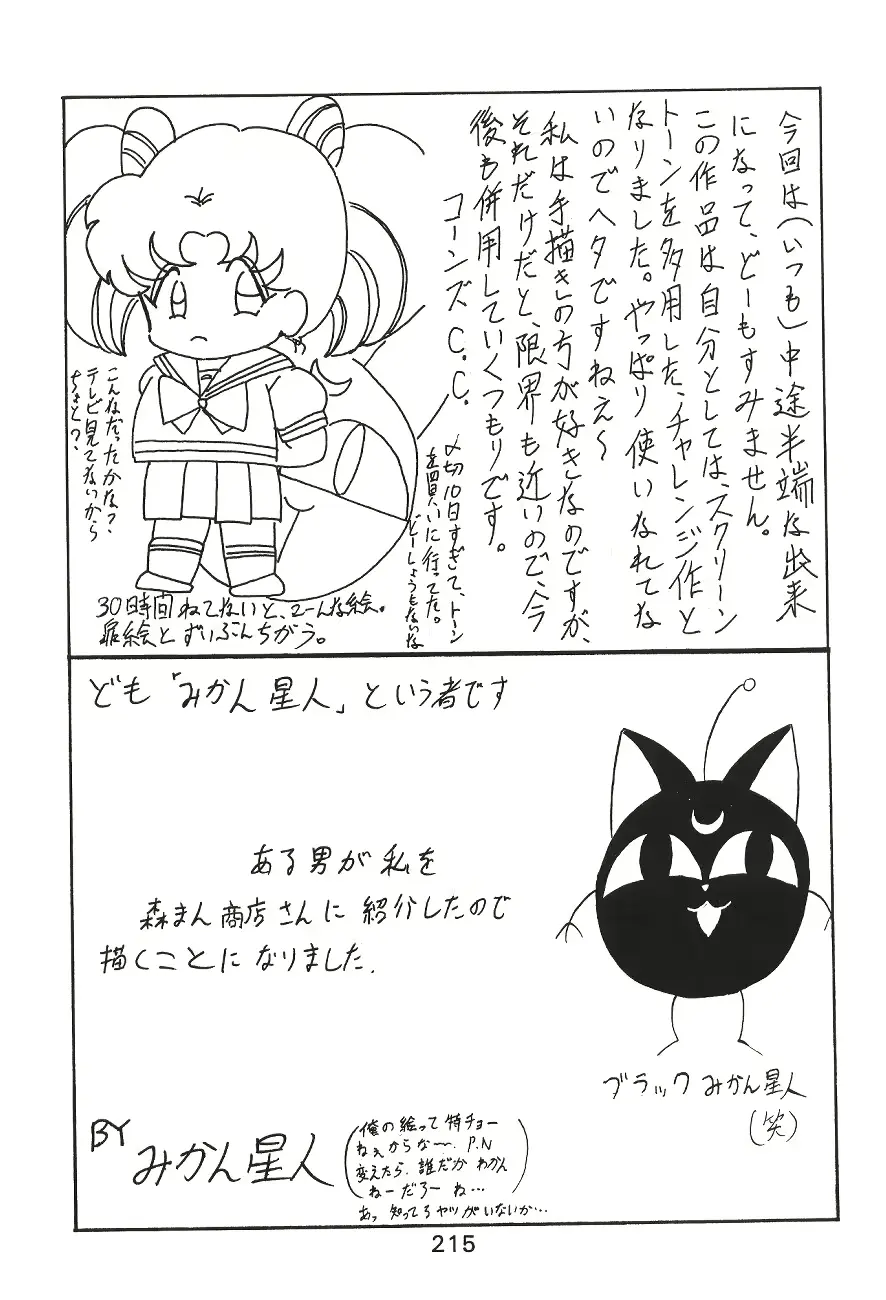 今回は(いつも)中途半端な出来
になって、どーもすみません。
この作品は自分としては、スクリーン
トーンを多用した、チャレンジ作と
なりました。やっぱり使いなれてな
いのでヘタですねえ〜
私は手描きの方が好きなのですが、
それだけだと、限界も近いので、今
後も併用していくつもりです。
コーンズC.C.
〆切10日すぎて、トーン
を買いに行ってた。
どーしょうもないな
こんなだったかな?
テレビ見てないから
ちょと?、
30時間ねてないと、こーんな絵。
扉絵とずいぶんちがう。
ども「みかん星人」という者です
ある男が私を
森まん商店さんに紹介したので
描くことになりました.
ブラックみかん星人
(笑)
BY
みかん星人
(俺の絵って特チョー
ねぇからな〜. P.N
変えたら.誰だかわかん
ねーだろーね…)
あっ知ってるヤツがいないか…
215